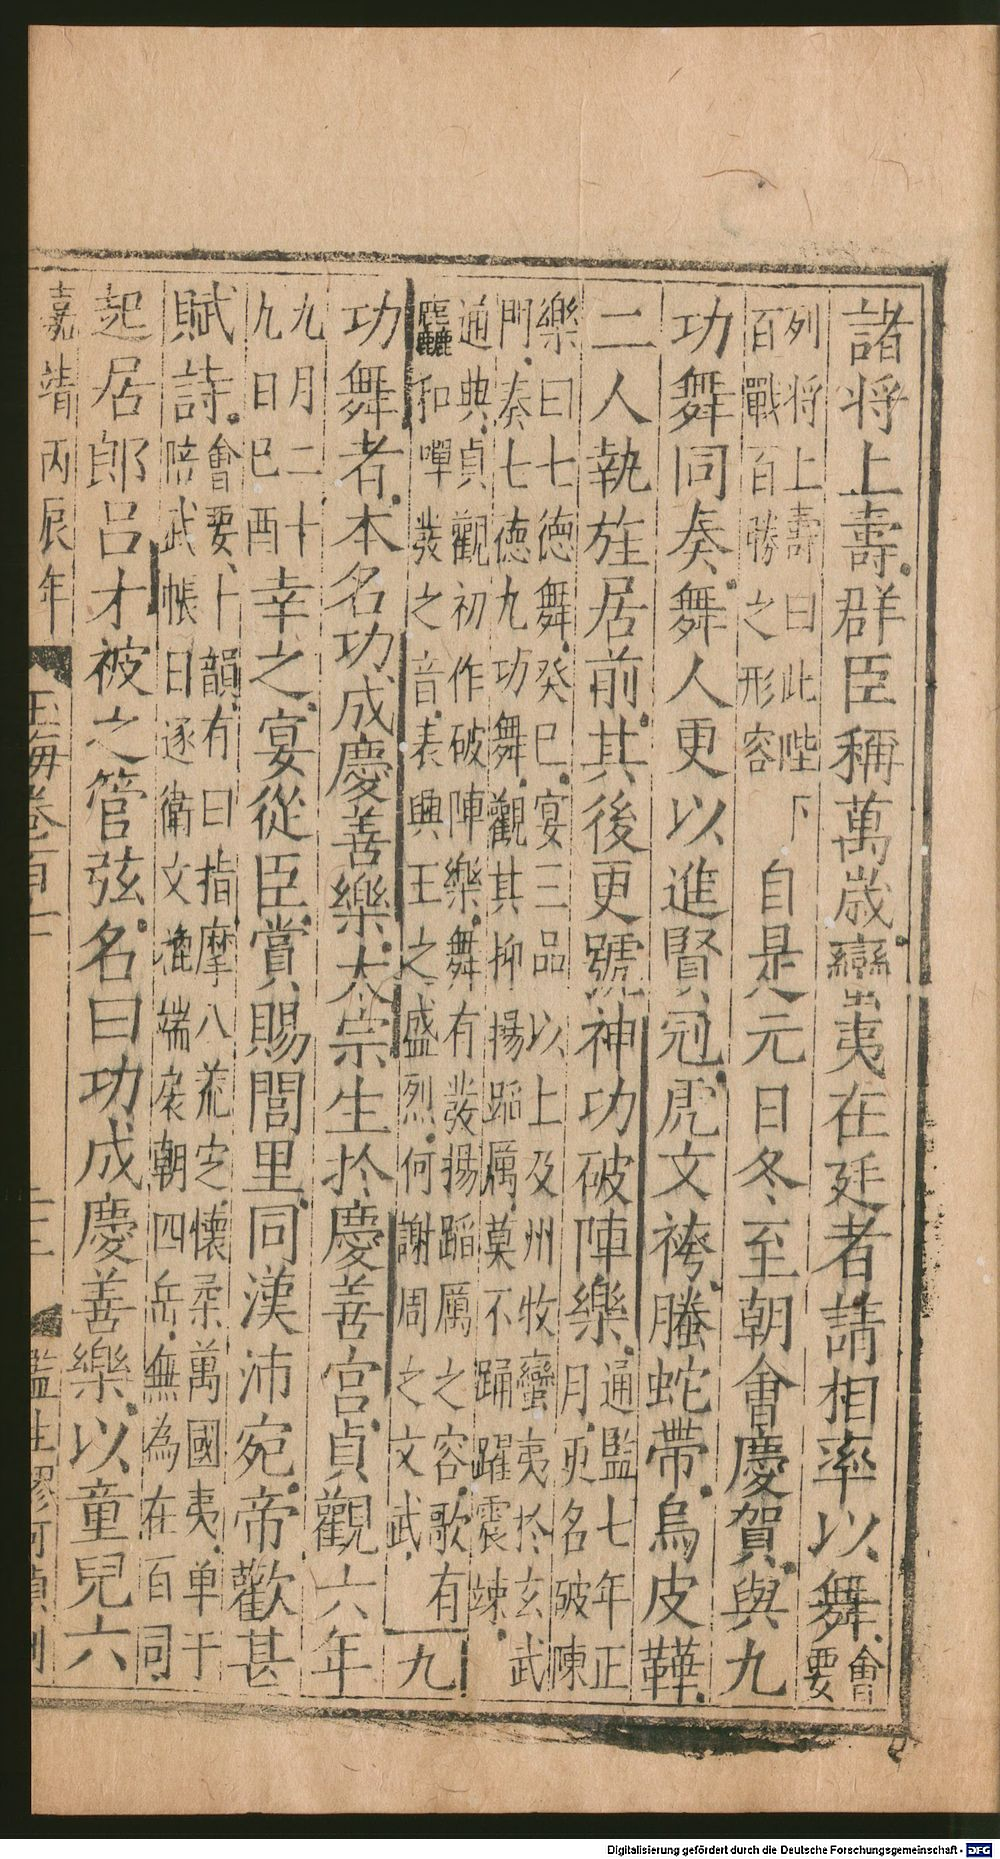 諸将上壽群臣稱萬歲蠻夷在廷者請相率以舞會要
列将上壽曰此陛下百戰百勝之形容自是元日冬至朝會慶賀與九
功舞同奏舞人更以進賢冠虎文袴螣蛇帶烏皮鞾
二人執旌居前其後更號神功破陣樂通監七年正月更名破陳
樂曰七德舞癸巳宴三品以上及州牧蠻夷於玄武
門奏七德九功舞觀其抑揚蹈厲莫不踊躍震竦
通典貞觀初作破陣樂舞有發揚蹈厲之容歌有
麤和嘽發之音表興王之盛烈何謝周之文武九
功舞者本名功成慶善樂太宗生於慶善宮貞觀六年
九月二十九日巳酉幸之宴從臣賞賜閭里同漢沛宛帝歡甚
賦詩會要卜韻有曰指摩八荒定懷柔萬國夷单于
陪武帳日逐衛文㮤端扆朝四岳無為在百司
起居郎呂才被之管弦名曰功成慶善樂以童兒六
嘉靖丙辰年
玉海卷百
Digitalisierung gefördert durch die Deutsche Forschungsgemeinschaft - DFG